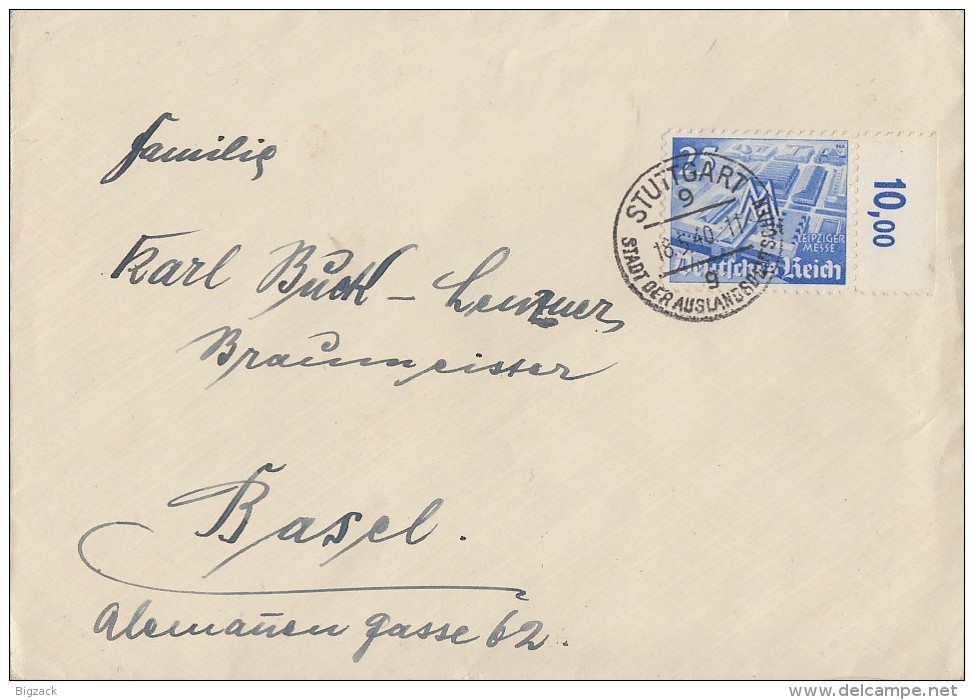 Familie
Karl Buck – Lenzner,
Braumeister
Basel.
Alemañen gasse 62.
25
LEIPZIGER
MESSE
Deutsches Reich
10,00
STUTTGART
9
18.5.40.-11
g
STADT DER AUSLANDSDEUTSCHEN
Bigzack
delcampe.net